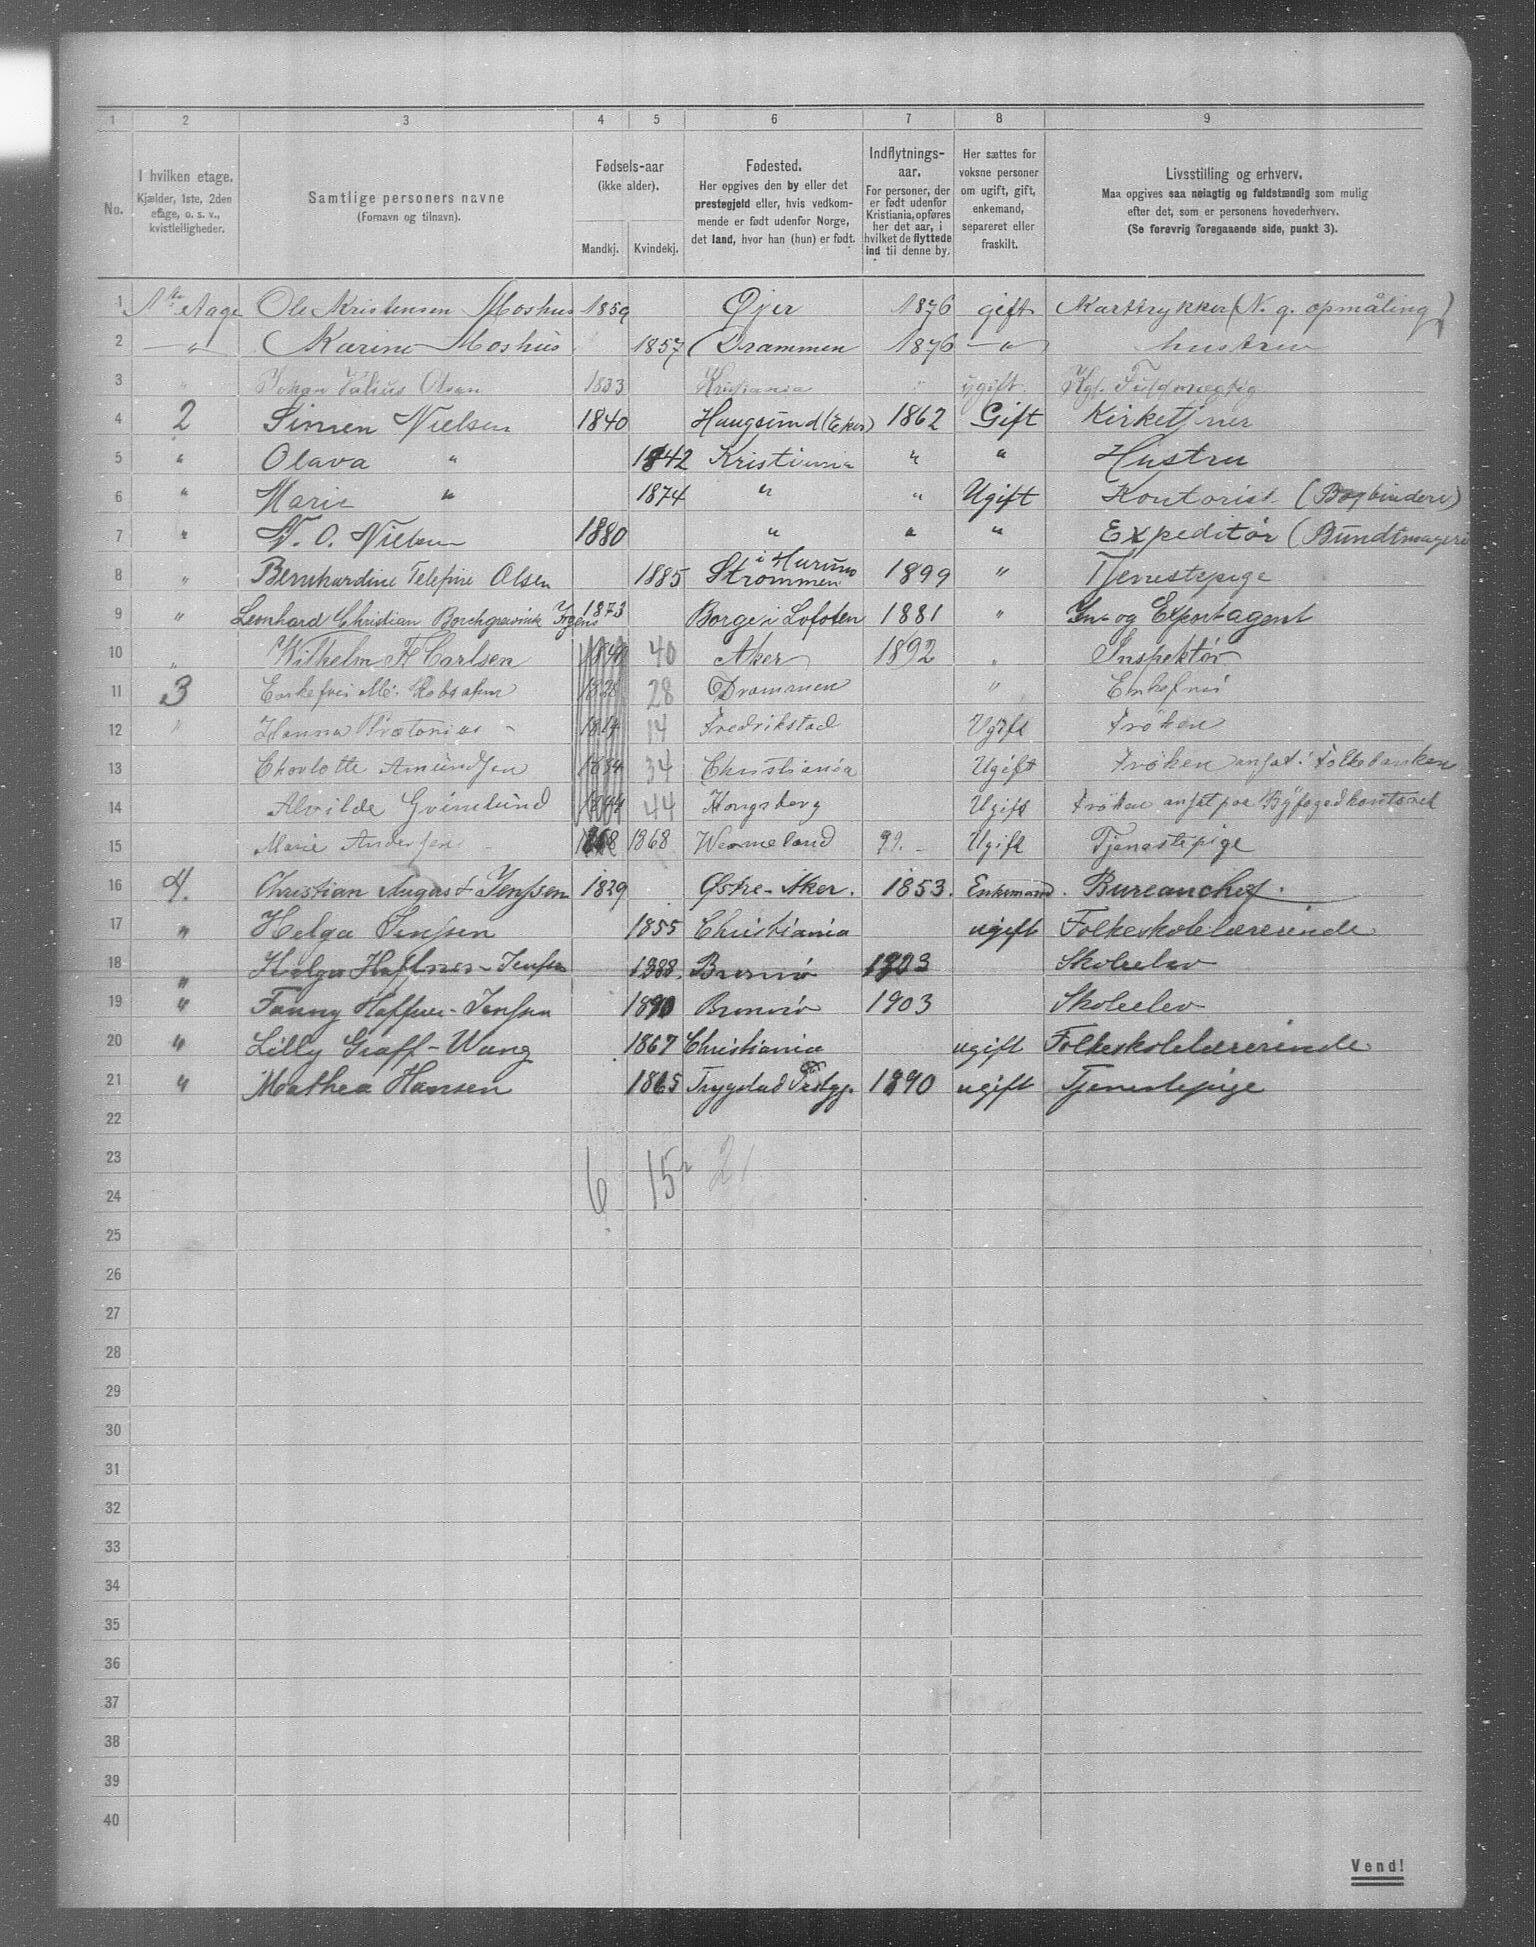 1 2 3 4 5 6 7 8 9
No.
I hvilken etage.
Kjælder, 1ste, 2den
etage, o. s. v.,
kvistleiligheder.
Samtlige personers navne
(Fornavn og tilnavn).
Fødsels-aar
(ikke alder).
Mandkj. Kvindekj.
Fødested.
Her opgives den by eller det
prestegjeld eller, hvis vedkom-
mende er født udenfor Norge,
det land, hvor han (hun) er født.
Indflytnings-
aar.
For personer, der
er født udenfor
Kristiania, opføres
her det aar, i
hvilket de flyttede
ind til denne by.
Her sættes for
voksne personer
om ugift, gift,
enkemand,
separeret eller
fraskilt.
Livsstilling og erhverv.
Maa opgives saa nøiagtig og fuldstændig som mulig
efter det, som er personens hovederhverv.
(Se forøvrig foregaaende side, punkt 3).
1 1ste Etage Ole Kristensen Moshus 1859 Øjer 1876 gift Karttrykker (N. g. opmåling)
2 " Karine Moshus 1857 Drammen 1876 " hustru
3 " Johan Julius Olsen 1833 Kristiania " ugift Kgl. Fuldmægtig
4 2 Simen Nielsen 1840 Haugsund (Eker) 1862 Gift Kirketjner
5 " Olava " 1842 Kristiania " " Hustru
6 " Marie " 1874 " " Ugift Kontorist (Bogbinderi)
7 " N. O. Nielsen 1880 " " " Expeditör (Bundtmageri
8 " Bernhardine Telefine Olsen 1885 Strømmen i Hurum 1899 " Tjenestepige
9 " Leonhard Christian Borchgrevink 1873 Borge i Lofoten 1881 " In- og Exportagent
10 " Wilhelm F Carlsen 1840 40 Aker 1892 " Inspektör
11 3 Enkefru M. 1828 28 Drammen " Enkefru
12 " Hanna Prætorius - 1814 14 Fredrikstad Ugift Fröken
13 Charlotte Amundsen 1834 34 Christiania Ugift Fröken ansat i Folkebanken
14 Alvilde Grimelund 1844 44 Kongsberg Ugift Fröken ansat paa Byfogedkontoret
15 Marie Andersen - 1868 1868 Wermeland 99. - Ugift Tjenestepige
16 4. Christian August Jenssen 1829 Østre-Aker. 1853. Enkemand. Bureauchef.
17 " Helga Jenssen 1855 Christiania ugift Folkeskolelærerinde
18 " Helga Haffner-Jenssen 1888. Brønnø 1903 Skoleelev
19 " Fanny Haffner-Jenssen 1890 Brønnø 1903 Skoleelev
20 " Lilly Graff-Wang 1867 Christiania ugift Folkeskolelærerinde
21 " Mathea Hansen 1865 Trygstad Prstgj. 1890 ugift Tjenestepige
22
23
6 15 21
24
25
26
27
28
29
30
31
32
33
34
35
36
37
38
39
40
Vend!